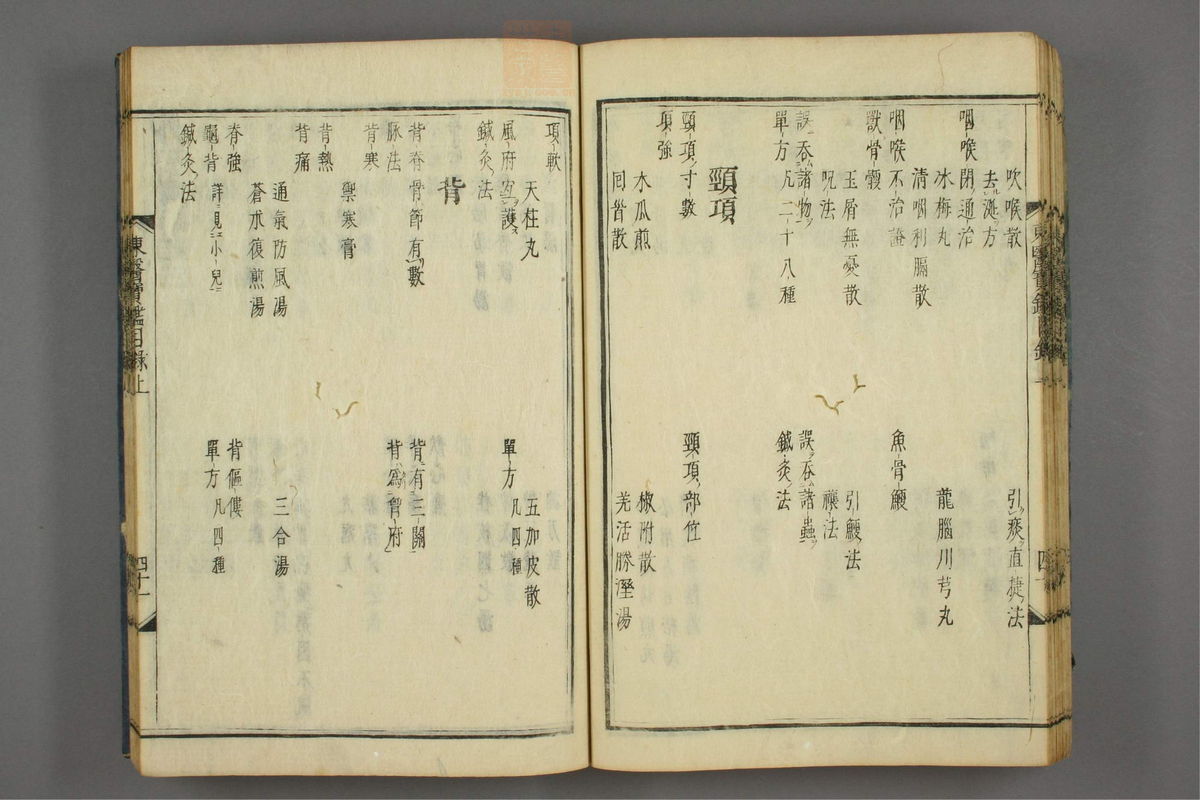 吹喉散
引痰直捷法
去涎方
咽喉閉通治
冰梅丸
龍腦川芎丸
清咽利膈散
咽喉不治證
魚骨鯁
獸骨鯁
玉屑無憂散
引鯁法
呪法
禳法
誤吞諸物
誤吞諸蟲
單方凡二十八種
鍼灸法
頸項
頸項寸數
頸項部位
項強
木瓜煎
椒附散
回首散
羌活勝溼湯
項軟
天柱丸
五加皮散
風府宜護
單方凡四種
鍼灸法
背
背脊骨節有數
背有三關
脉法
背爲胷府
背寒
禦寒膏
背熱
背痛
通氣防風湯
三合湯
蒼朮復煎湯
脊強
背傴僂
龜背詳見小兒
單方凡四種
鍼灸法
東醫寶鑑目錄上
四十一